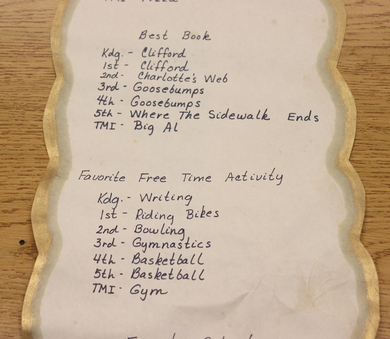 Best Book
Kdg. - Clifford
1st - Clifford
2nd - Charlotte's Web
3rd - Goosebumps
4th - Goosebumps
5th - Where The Sidewalk Ends
TMI - Big Al
Favorite Free Time Activity
Kdg. - Writing
1st - Riding Bikes
2nd - Bowling
3rd - Gymnastics
4th - Basketball
5th - Basketball
TMI - Gym